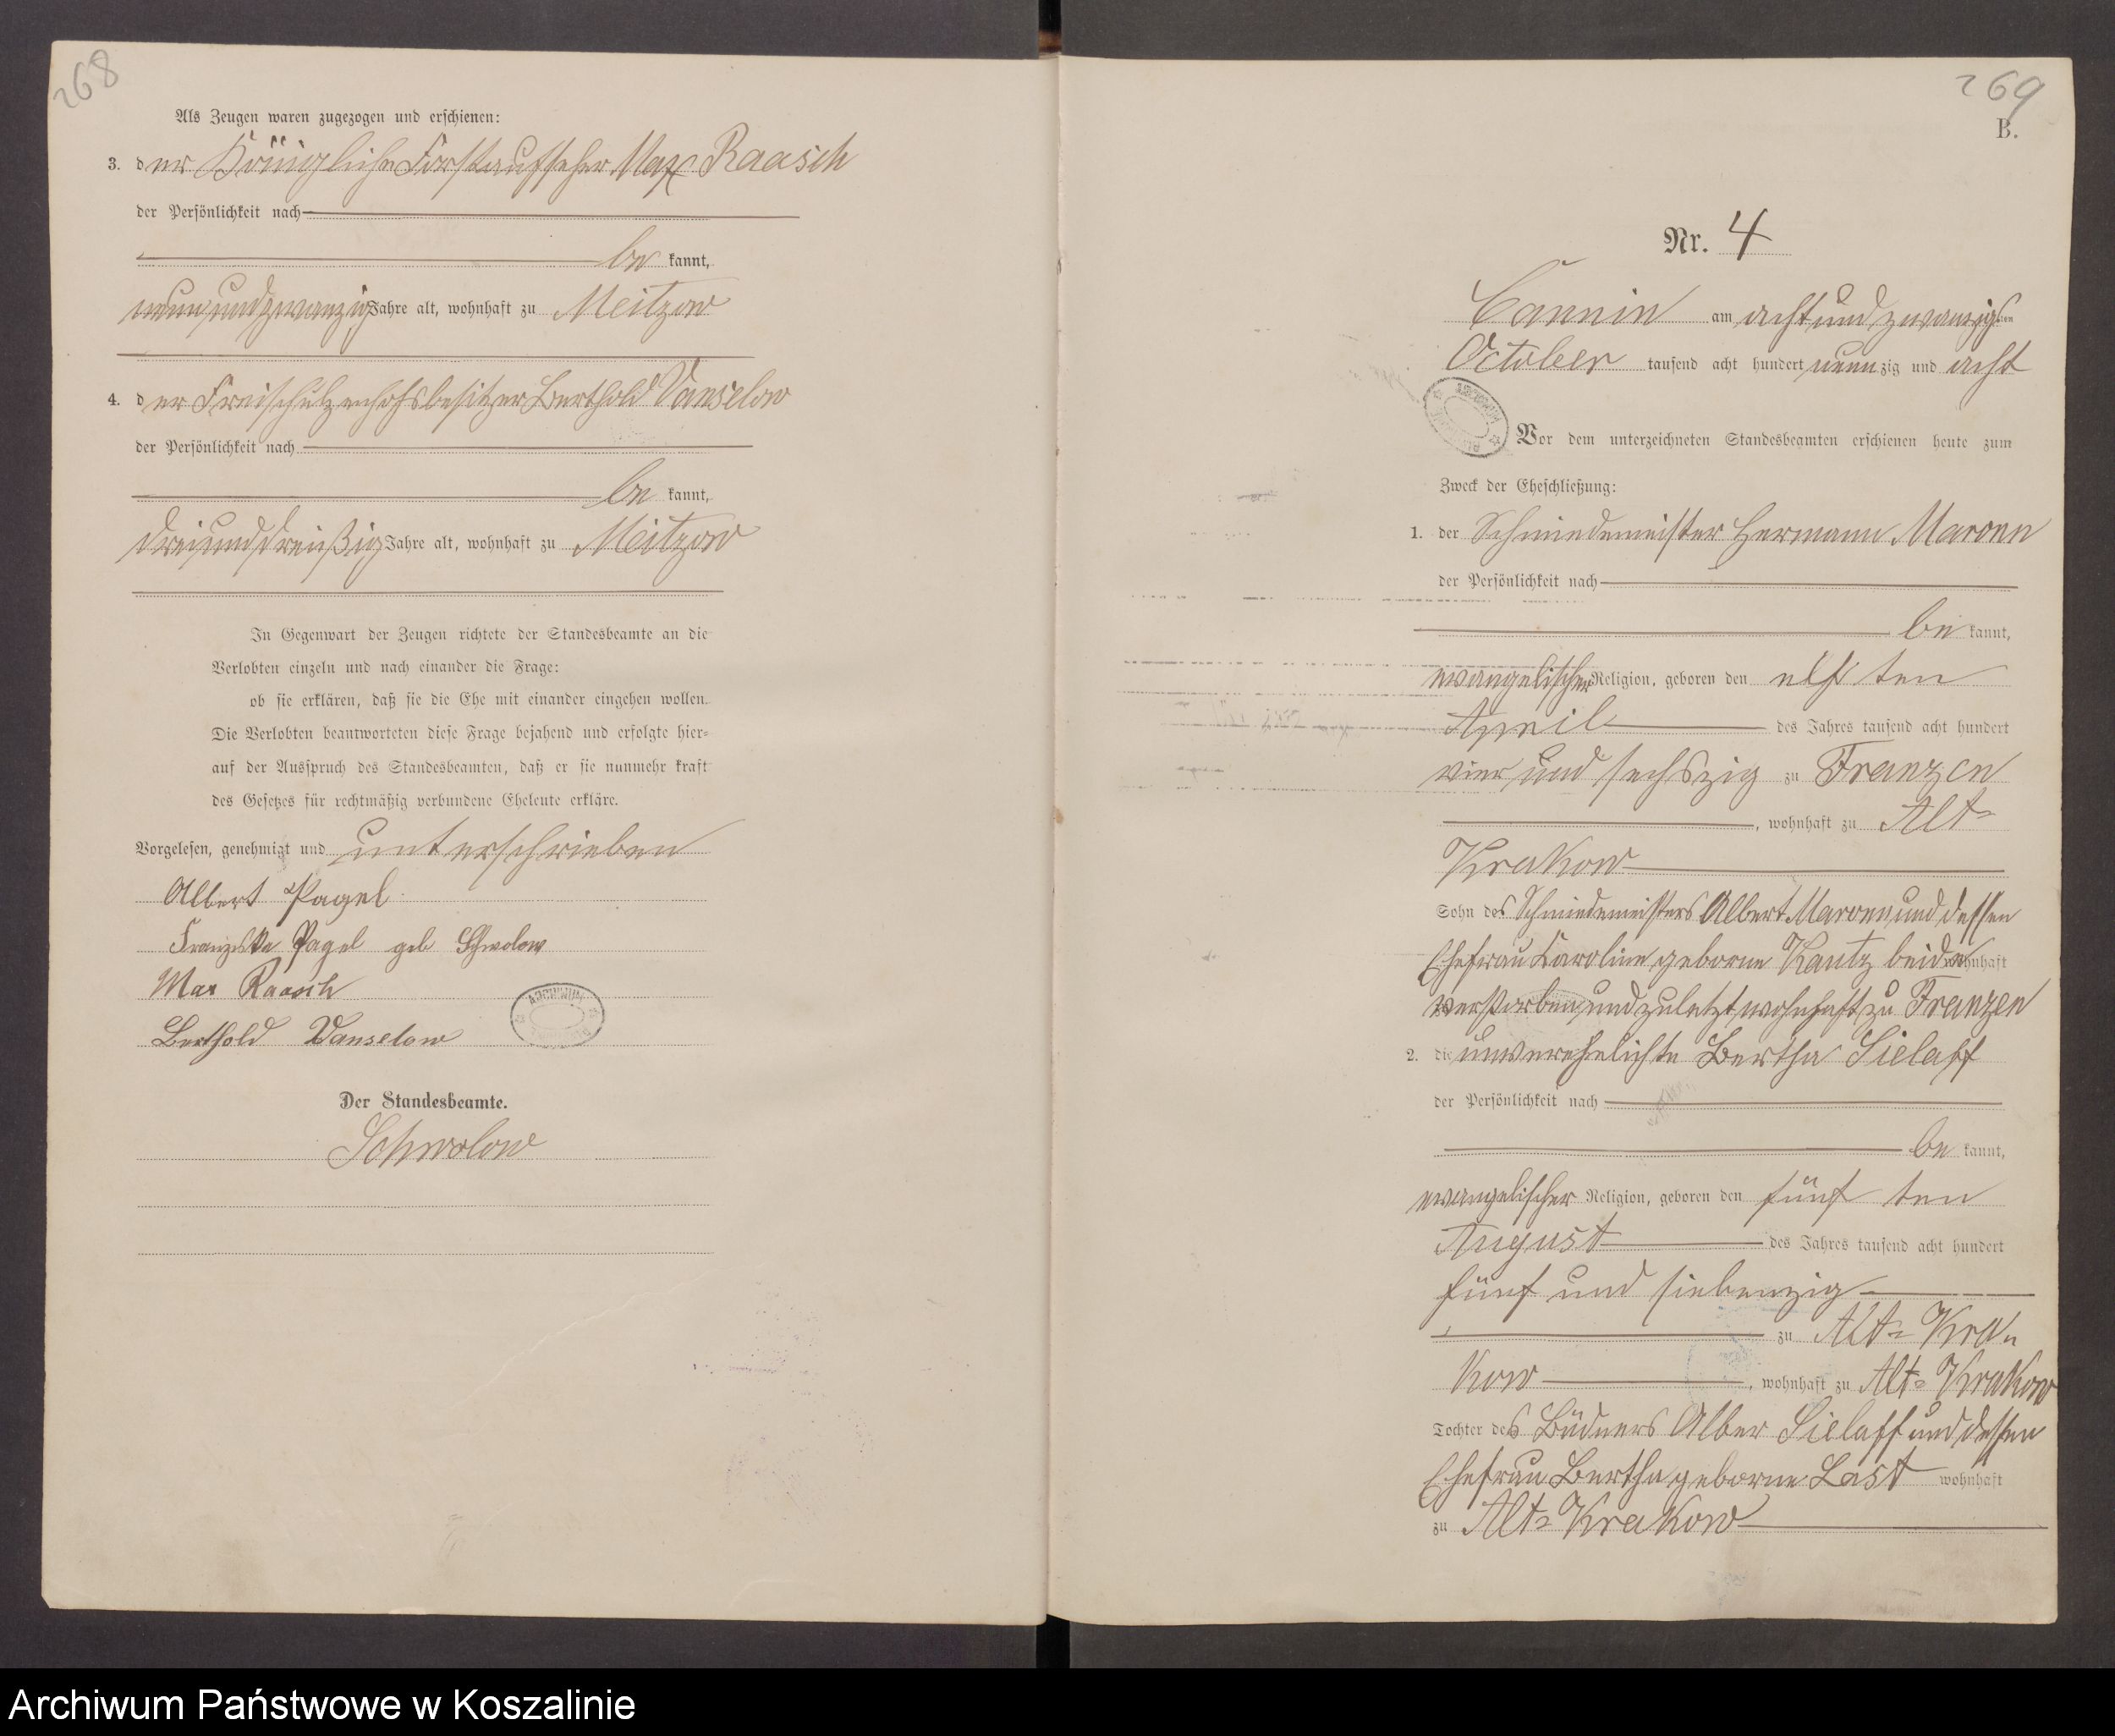 268
Als Zeugen waren zugezogen und erschienen:
3. der Königliche Forstaufseher Max Raasch
der Persönlichkeit nach
be kannt,
neunundzwanzig Jahre alt, wohnhaft zu Meitzow
4. der Freischulzenhofsbesitzer Berthold Vanselow
der Persönlichkeit nach
be kannt,
dreiunddreißig Jahre alt, wohnhaft zu Meitzow
In Gegenwart der Zeugen richtete der Standesbeamte an die
Verlobten einzeln und nach einander die Frage:
ob sie erklären, daß sie die Ehe mit einander eingehen wollen.
Die Verlobten beantworteten diese Frage bejahend und erfolgte hier-
auf der Ausspruch des Standesbeamten, daß er sie nunmehr kraft
des Gesetzes für rechtmäßig verbundene Eheleute erkläre.
Vorgelesen, genehmigt und unterschrieben
Albert Pagel
Franziska Pagel geb Schwolow
Max Raasch
Berthold Vanselow
ARCHIWUM
Der Standesbeamte.
Schwolow
269
B.
Nr. 4
Cannin am achtundzwanzigsten
October tausend acht hundert neunzig und acht
ARCHIWUM
Vor dem unterzeichneten Standesbeamten erschienen heute zum
Zweck der Eheschließung:
1. der Schmiedemeister Hermann Maronn
der Persönlichkeit nach
be kannt,
evangelischer Religion, geboren den elf ten
April des Jahres tausend acht hundert
vier und sechszig zu Franzen
, wohnhaft zu Alt-
Krakow
Sohn des Schmiedemeisters Albert Maronn und dessen
Ehefrau Karoline geborne Kautz beide wohnhaft
verstorben und zuletzt wohnhaft zu Franzen
2. die unverehelichte Bertha Sielaff
der Persönlichkeit nach
be kannt,
evangelischer Religion, geboren den fünf ten
August des Jahres tausend acht hundert
fünf und siebenzig
zu Alt-Kra-
kow , wohnhaft zu Alt-Krakow
Tochter des Büdners Alber Sielaff und dessen
Ehefrau Bertha geborne Last wohnhaft
zu Alt-Krakow
Archiwum Państwowe w Koszalinie